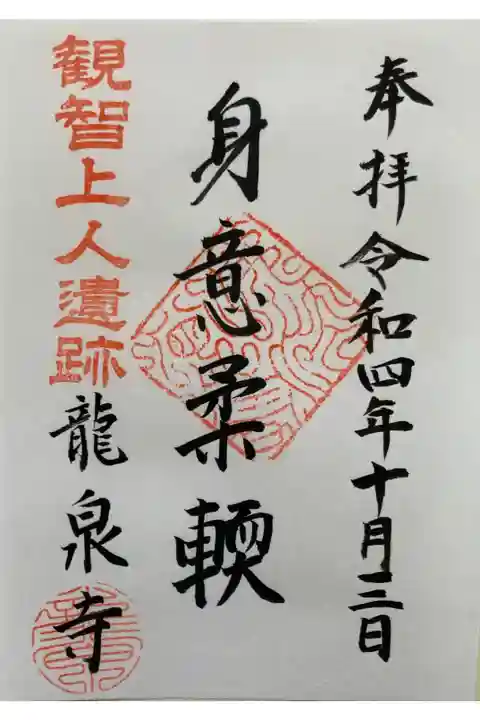 奉拝令和四年十月三日
身意柔輭
観智上人遺跡
龍泉寺